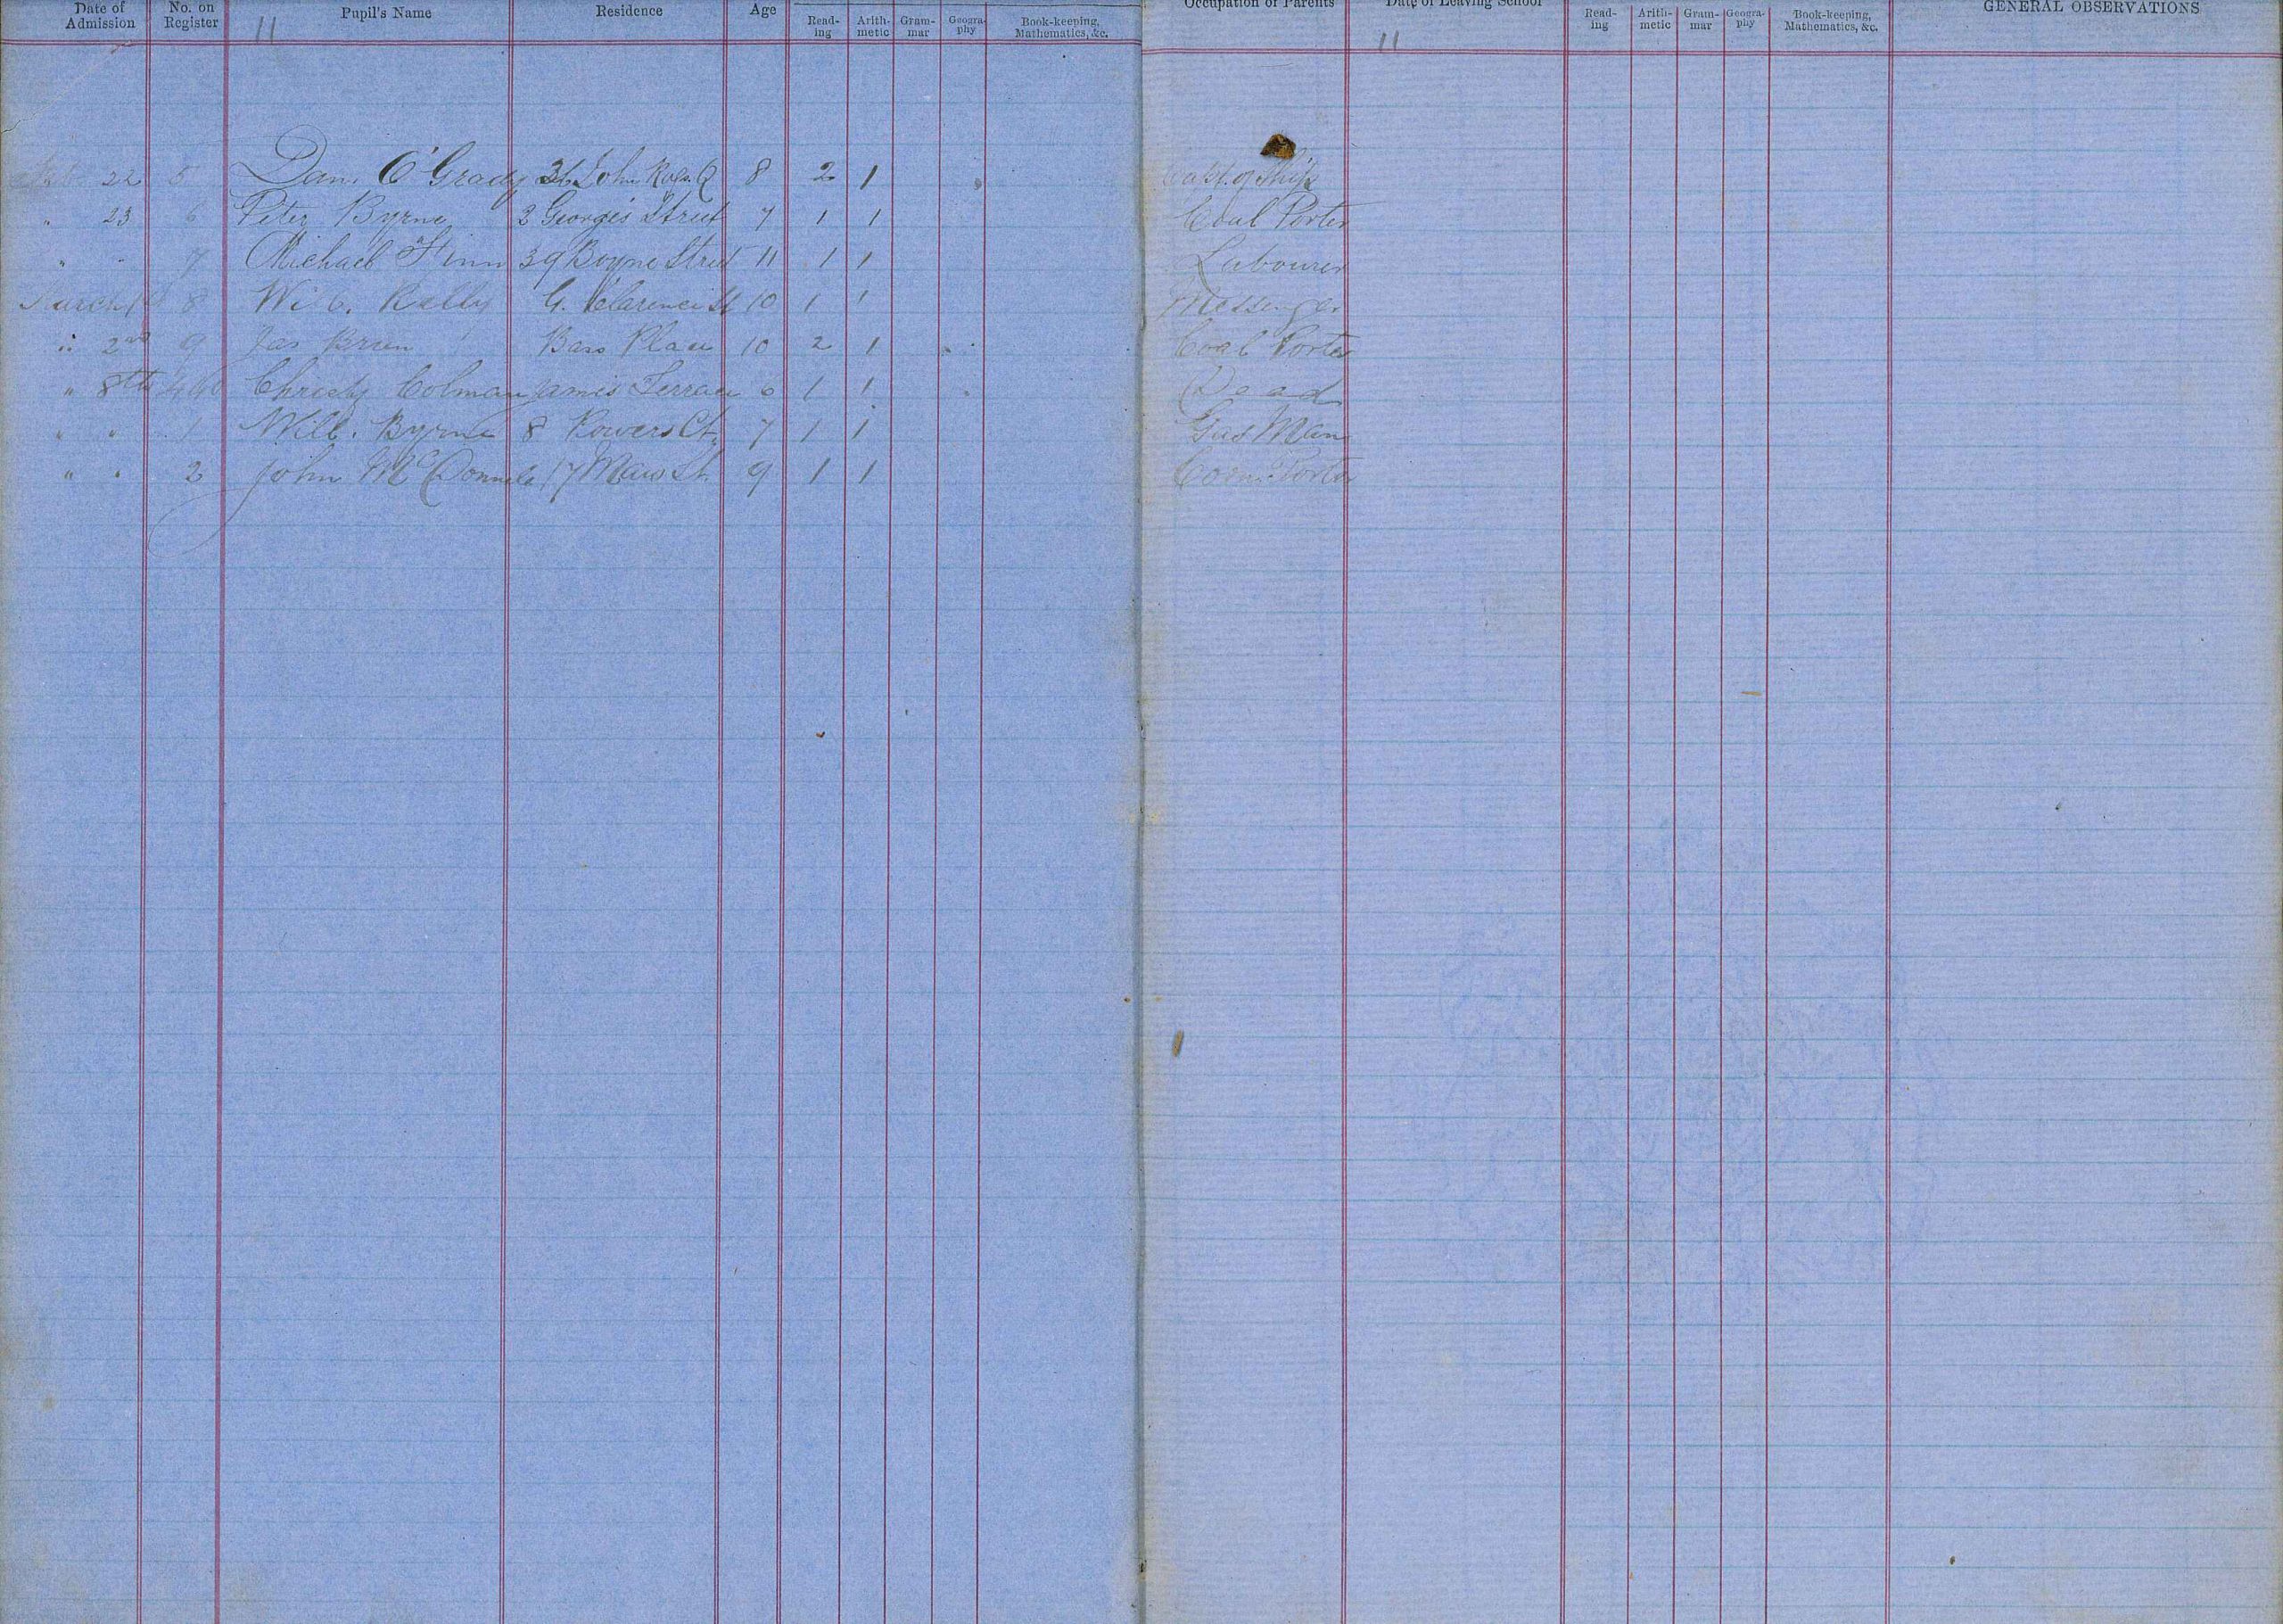 Date of Admission No. on Register Pupil's Name Residence Age Read-ing Arith-metic Gram-mar Geogra-phy Book-keeping, Mathematics, &c. Occupation of Parents Date of Leaving School Read-ing Arith-metic Gram-mar Geogra-phy Book-keeping, Mathematics, &c. GENERAL OBSERVATIONS
11 11
Feb 22 5 Dan. O'Grady John Rogs. Q 8 2 1 Capt. of Ship
" 23 6 Peter Byrne 3 George's Street 7 1 1 Coal Porter
" " 7 Michael Flinn 39 Boyne Street 11 1 1 Labourer
March 1st 8 Will. Kelly G. Clarence St 10 1 1 Messenger
" 2nd 9 Jas Brien Bass Place 10 2 1 Coal Porter
" 8th 490 Christy Colman James Terrace 6 1 1 Dead
" " 1 Will. Byrne 8 Powers Ct. 7 1 1 Gas Man
" " 2 John McDonnell 17 Mars St. 9 1 1 Corn Porter